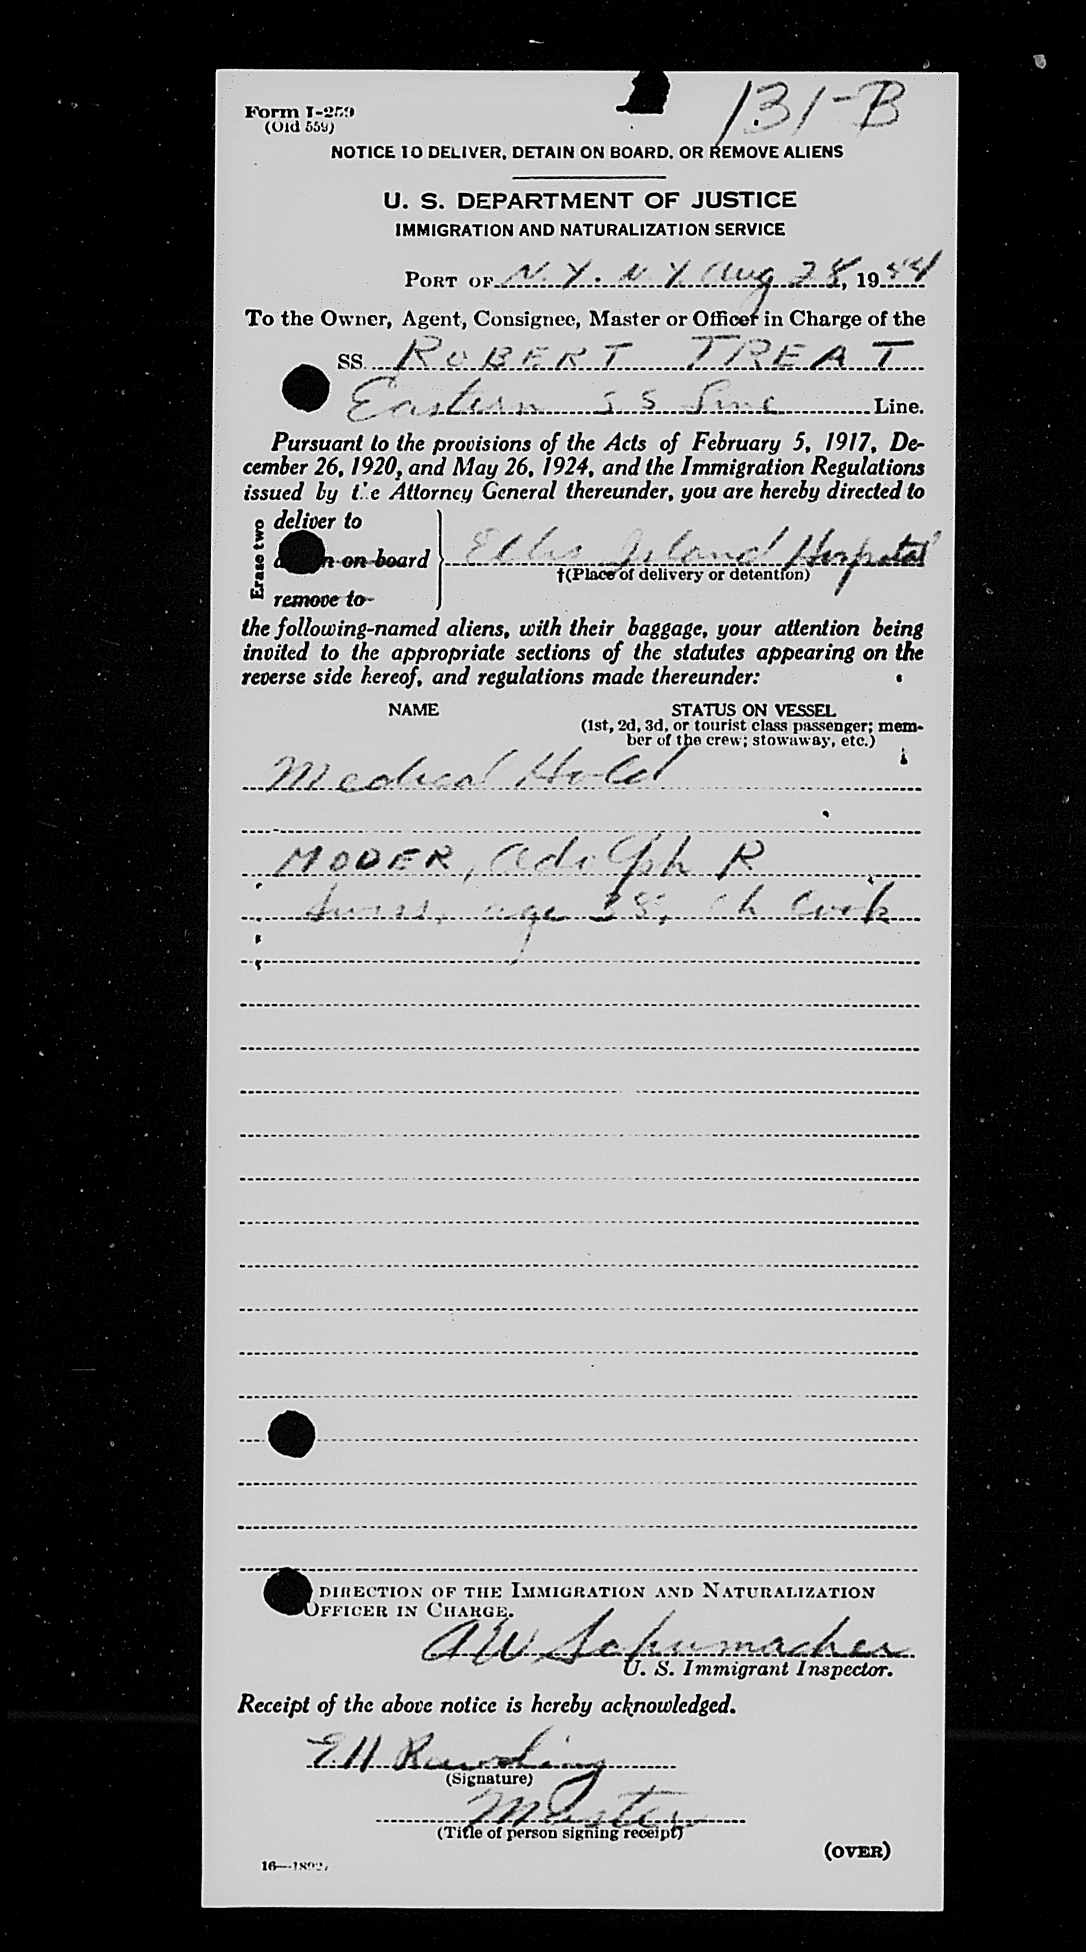 131-B
Form I-259
(Old 559)
NOTICE TO DELIVER, DETAIN ON BOARD, OR REMOVE ALIENS
U. S. DEPARTMENT OF JUSTICE
IMMIGRATION AND NATURALIZATION SERVICE
PORT OF N. Y. N. Y. Aug 28, 1944
To the Owner, Agent, Consignee, Master or Officer in Charge of the
SS. ROBERT TREAT
Eastern S S Line Line.
Pursuant to the provisions of the Acts of February 5, 1917, De-
cember 26, 1920, and May 26, 1924, and the Immigration Regulations
issued by the Attorney General thereunder, you are hereby directed to
Erase two
deliver to
on board
remove to
Ellis Island Hospital
†(Place of delivery or detention)
the following-named aliens, with their baggage, your attention being
invited to the appropriate sections of the statutes appearing on the
reverse side hereof, and regulations made thereunder:
NAME STATUS ON VESSEL
(1st, 2d, 3d, or tourist class passenger; mem-
ber of the crew; stowaway, etc.)
Medical Hold
MODER, Adolph R
Swiss, age 38, Ch Cook
DIRECTION OF THE IMMIGRATION AND NATURALIZATION
OFFICER IN CHARGE.
A W Schumacher
U. S. Immigrant Inspector.
Receipt of the above notice is hereby acknowledged.
E H Rawding
(Signature)
Master
(Title of person signing receipt)
(OVER)